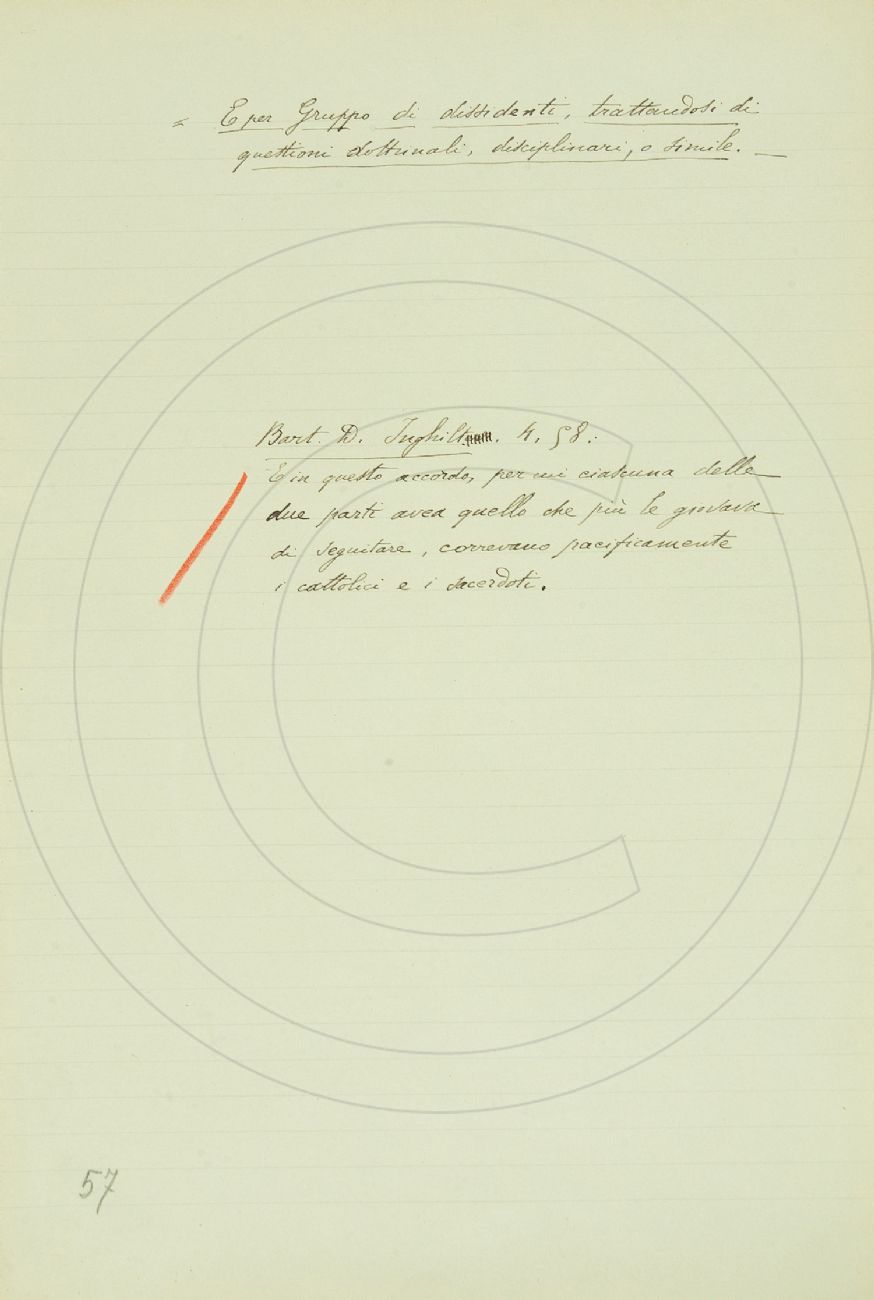 = E per Gruppo di dissidenti, trattandosi di
questioni dottrinali, disciplinari, o simile. —
Bart. D. Inghilt. 4, 58.
E in questo accordo, per cui ciascuna delle
due parti avea quello che più le giovava
di seguitare, correvano pacificamente
i cattolici e i sacerdoti.
57